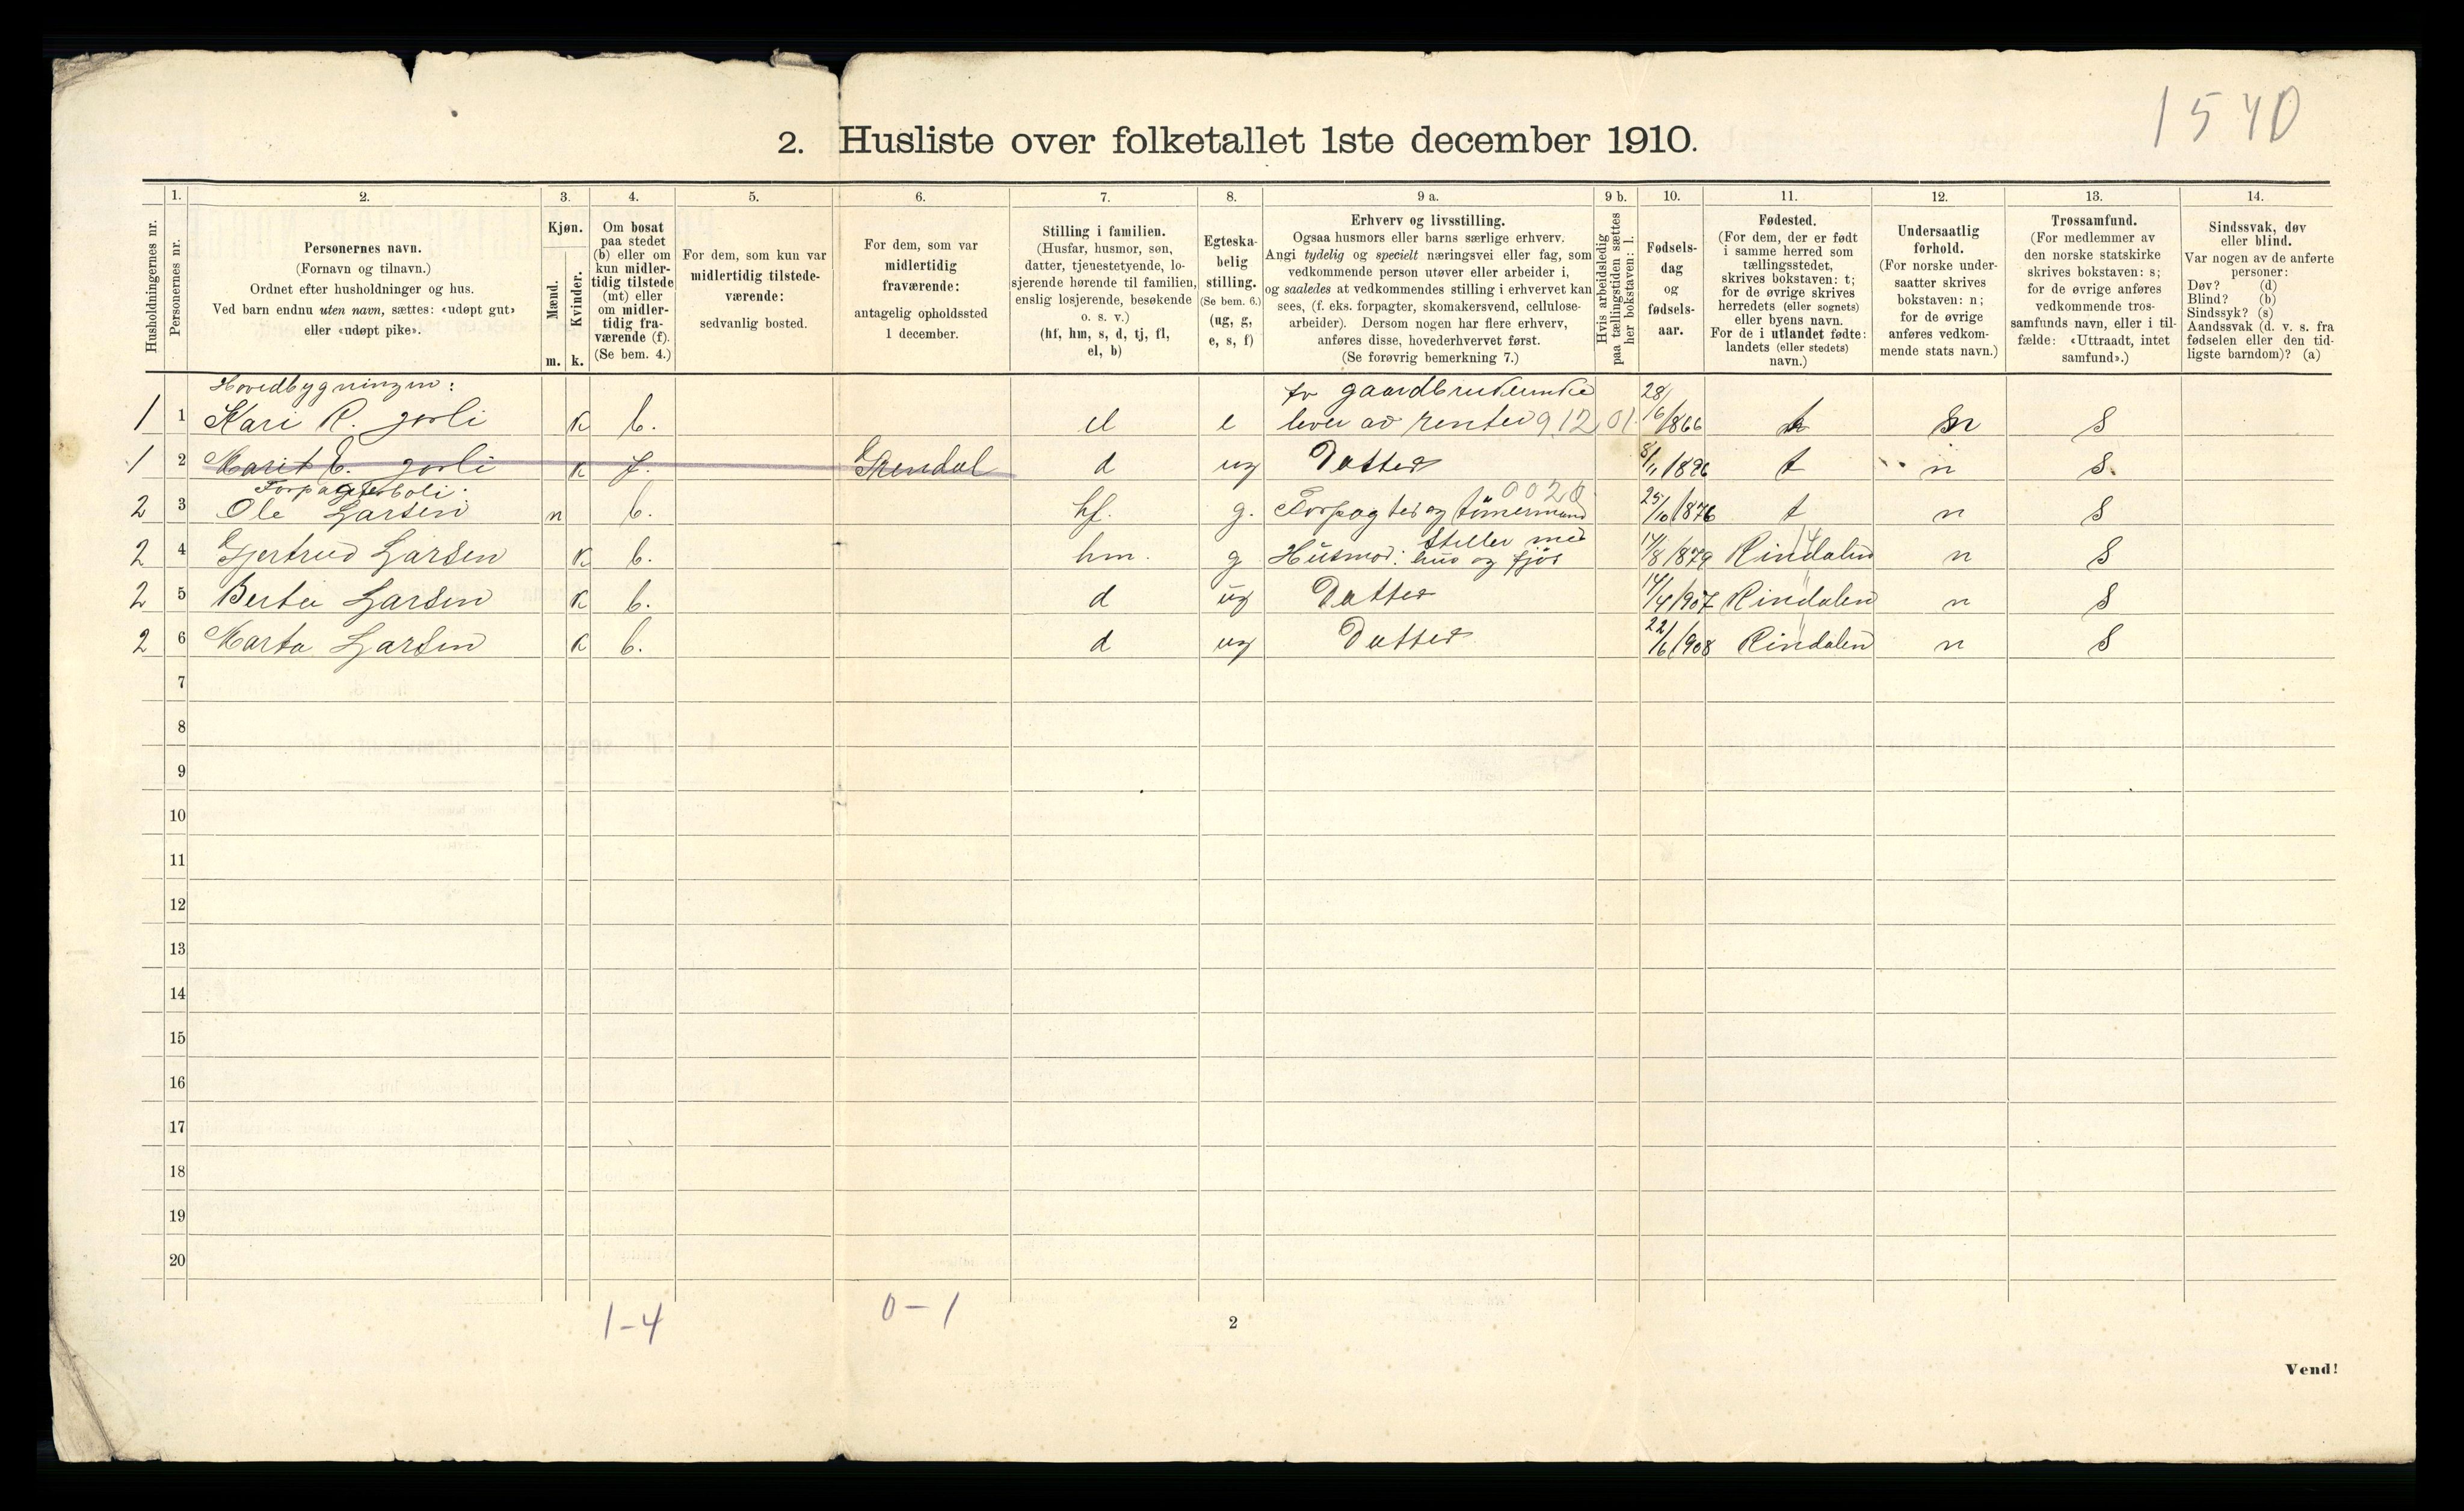 1540
2. Husliste over folketallet 1ste december 1910.
Husholdningernes nr.
1.
Personernes nr.
2.
Personernes navn.
(Fornavn og tilnavn.)
Ordnet efter husholdninger og hus.
Ved barn endnu uten navn, sættes: «udøpt gut»
eller «udøpt pike».
3.
Kjøn.
Mænd.
Kvinder.
m. k.
4.
Om bosat
paa stedet
(b) eller om
kun midler-
tidig tilstede
(mt) eller
om midler-
tidig fra-
værende (f).
(Se bem. 4.)
5.
For dem, som kun var
midlertidig tilstede-
værende:
sedvanlig bosted.
6.
For dem, som var
midlertidig
fraværende:
antagelig opholdssted
1 december.
7.
Stilling i familien.
(Husfar, husmor, søn,
datter, tjenestetyende, lo-
sjerende hørende til familien,
enslig losjerende, besøkende
o. s. v.)
(hf, hm, s, d, tj, fl,
el, b)
8.
Egteska-
belig
stilling.
(Se bem. 6.)
(ug, g,
e, s, f)
9 a.
Erhverv og livsstilling.
Ogsaa husmors eller barns særlige erhverv.
Angi tydelig og specielt næringsvei eller fag, som
vedkommende person utøver eller arbeider i,
og saaledes at vedkommendes stilling i erhvervet kan
sees, (f. eks. forpagter, skomakersvend, cellulose-
arbeider). Dersom nogen har flere erhverv,
anføres disse, hovederhvervet først.
(Se forøvrig bemerkning 7.)
9 b.
Hvis arbeidsledig
paa tællingstiden sættes
her bokstaven: l.
10.
Fødsels-
dag
og
fødsels-
aar.
11.
Fødested.
(For dem, der er født
i samme herred som
tællingsstedet,
skrives bokstaven: t;
for de øvrige skrives
herredets (eller sognets)
eller byens navn.
For de i utlandet fødte:
landets (eller stedets)
navn.)
12.
Undersaatlig
forhold.
(For norske under-
saatter skrives
bokstaven: n;
for de øvrige
anføres vedkom-
mende stats navn.)
13.
Trossamfund.
(For medlemmer av
den norske statskirke
skrives bokstaven: s;
for de øvrige anføres
vedkommende tros-
samfunds navn, eller i til-
fælde: «Uttraadt, intet
samfund».)
14.
Sindssvak, døv
eller blind.
Var nogen av de anførte
personer:
Døv? (d)
Blind? (b)
Sindssyk? (s)
Aandssvak (d. v. s. fra
fødselen eller den tid-
ligste barndom)? (a)
Hovedbygningen:
1 1 Kari R. Jorli k b. el e fv gaardbrukerenke lever av renter 912 01 28/6 1866 n s
1 2 Marit E. Jorli k f. Grendal d ug Datter 8/11 1896 t n s.
Forpagterboli:
2 3 Ole Larsen m b. hf. g. Forpagter og tømermand 0020 25/10 1876 t n s
2 4 Gjertrud Larsen k b. hm. g Husmor: Steller med hus og fjøs 14/8 1879 Rindalen 14 n s
2 5 Berta Larsen k b. d ug Datter 14/4 1907 Rindalen " n s
2 6 Marta Larsen k b. d ug Datter 22/6 1908 Rindalen " n s
7
8
9
10
11
12
13
14
15
16
17
18
19
20
1-4
0-1
2
Vend!